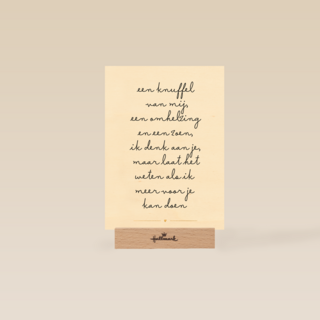 een knuffel
van mij,
een omhelzing
en een zoen,
ik denk aan je,
maar laat het
weten als ik
meer voor je
kan doen
Hallmark